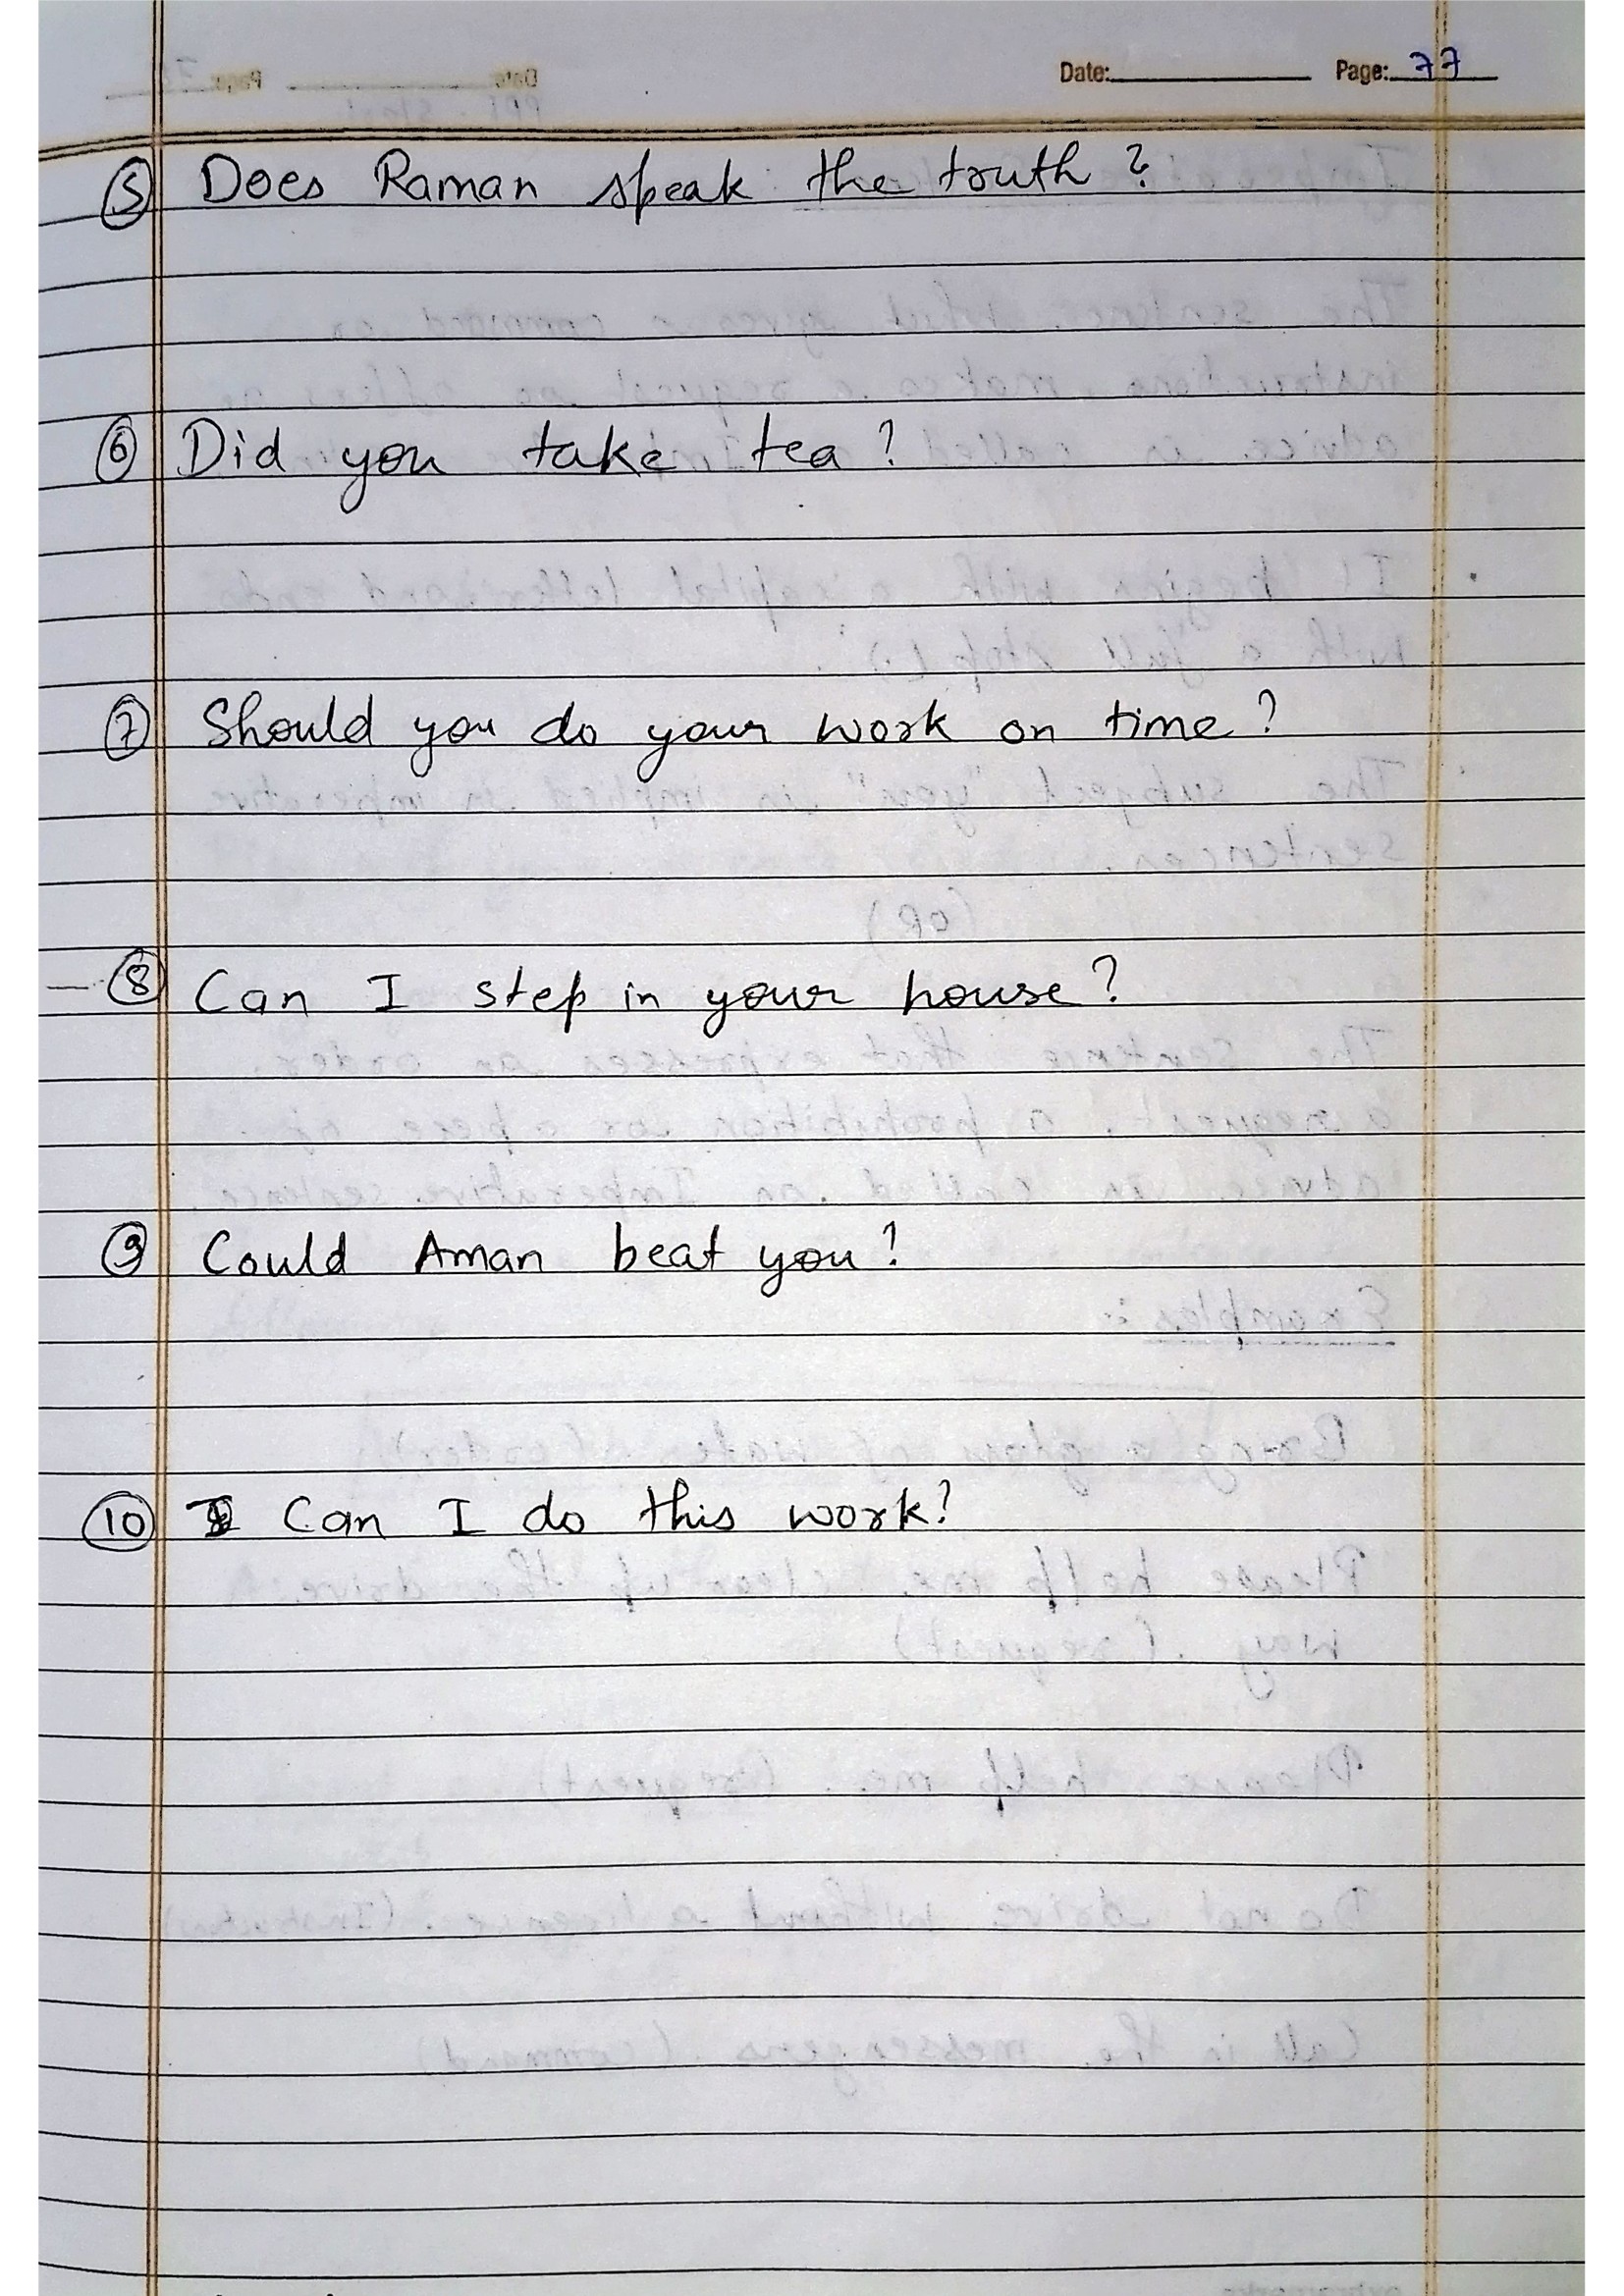 Date: Page: 77
5 Does Raman speak the truth?
6 Did you take tea?
7 Should you do your work on time?
8 Can I step in your house?
9 Could Aman beat you?
10 Can I do this work?